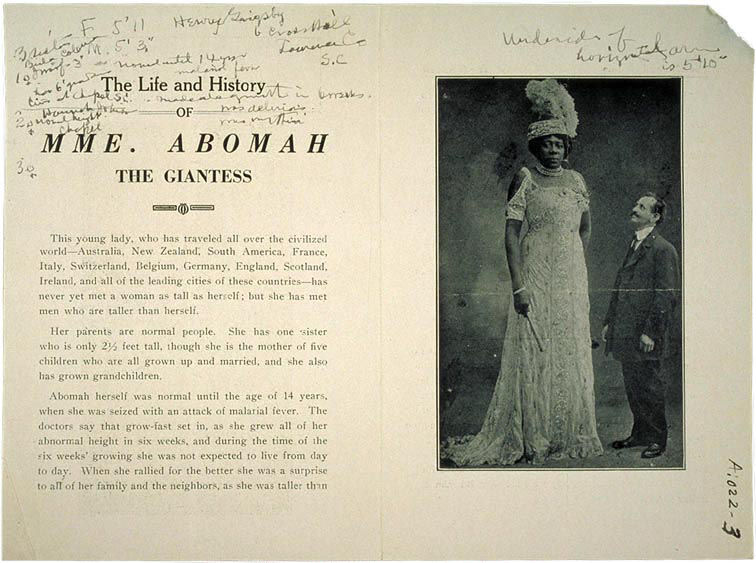 F. 5'11
Henry Grigsby
6 Cross Hill
Laurens Co
S.C
normal until 14 yrs
malarial fever
was delirious
Underside of
horizontal arm
is 5'10"
The Life and History
OF
MME. ABOMAH
THE GIANTESS
This young lady, who has traveled all over the civilized
world—Australia, New Zealand, South America, France,
Italy, Switzerland, Belgium, Germany, England, Scotland,
Ireland, and all of the leading cities of these countries—has
never yet met a woman as tall as herself; but she has met
men who are taller than herself.
Her parents are normal people. She has one sister
who is only 2½ feet tall, though she is the mother of five
children who are all grown up and married, and she also
has grown grandchildren.
Abomah herself was normal until the age of 14 years,
when she was seized with an attack of malarial fever. The
doctors say that grow-fast set in, as she grew all of her
abnormal height in six weeks, and during the time of the
six weeks' growing she was not expected to live from day
to day. When she rallied for the better she was a surprise
to all of her family and the neighbors, as she was taller than
A:022-3